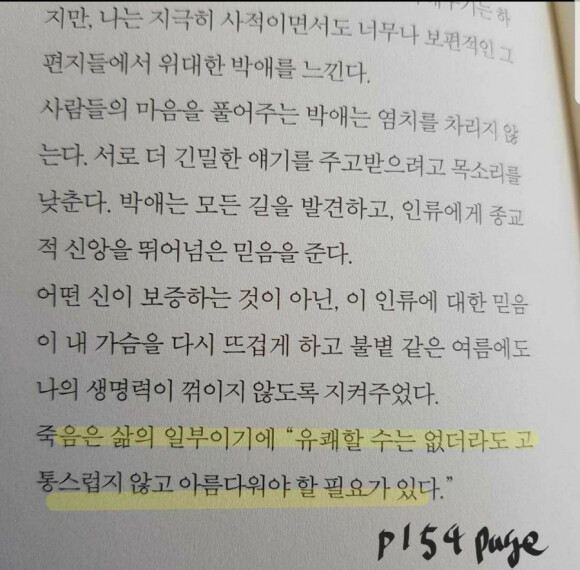 는 하
지만, 나는 지극히 사적이면서도 너무나 보편적인 그
편지들에서 위대한 박애를 느낀다.
사람들의 마음을 풀어주는 박애는 염치를 차리지 않
는다. 서로 더 긴밀한 얘기를 주고받으려고 목소리를
낮춘다. 박애는 모든 길을 발견하고, 인류에게 종교
적 신앙을 뛰어넘은 믿음을 준다.
어떤 신이 보증하는 것이 아닌, 이 인류에 대한 믿음
이 내 가슴을 다시 뜨겁게 하고 불볕 같은 여름에도
나의 생명력이 꺾이지 않도록 지켜주었다.
죽음은 삶의 일부이기에 “유쾌할 수는 없더라도 고
통스럽지 않고 아름다워야 할 필요가 있다.”
p154 page